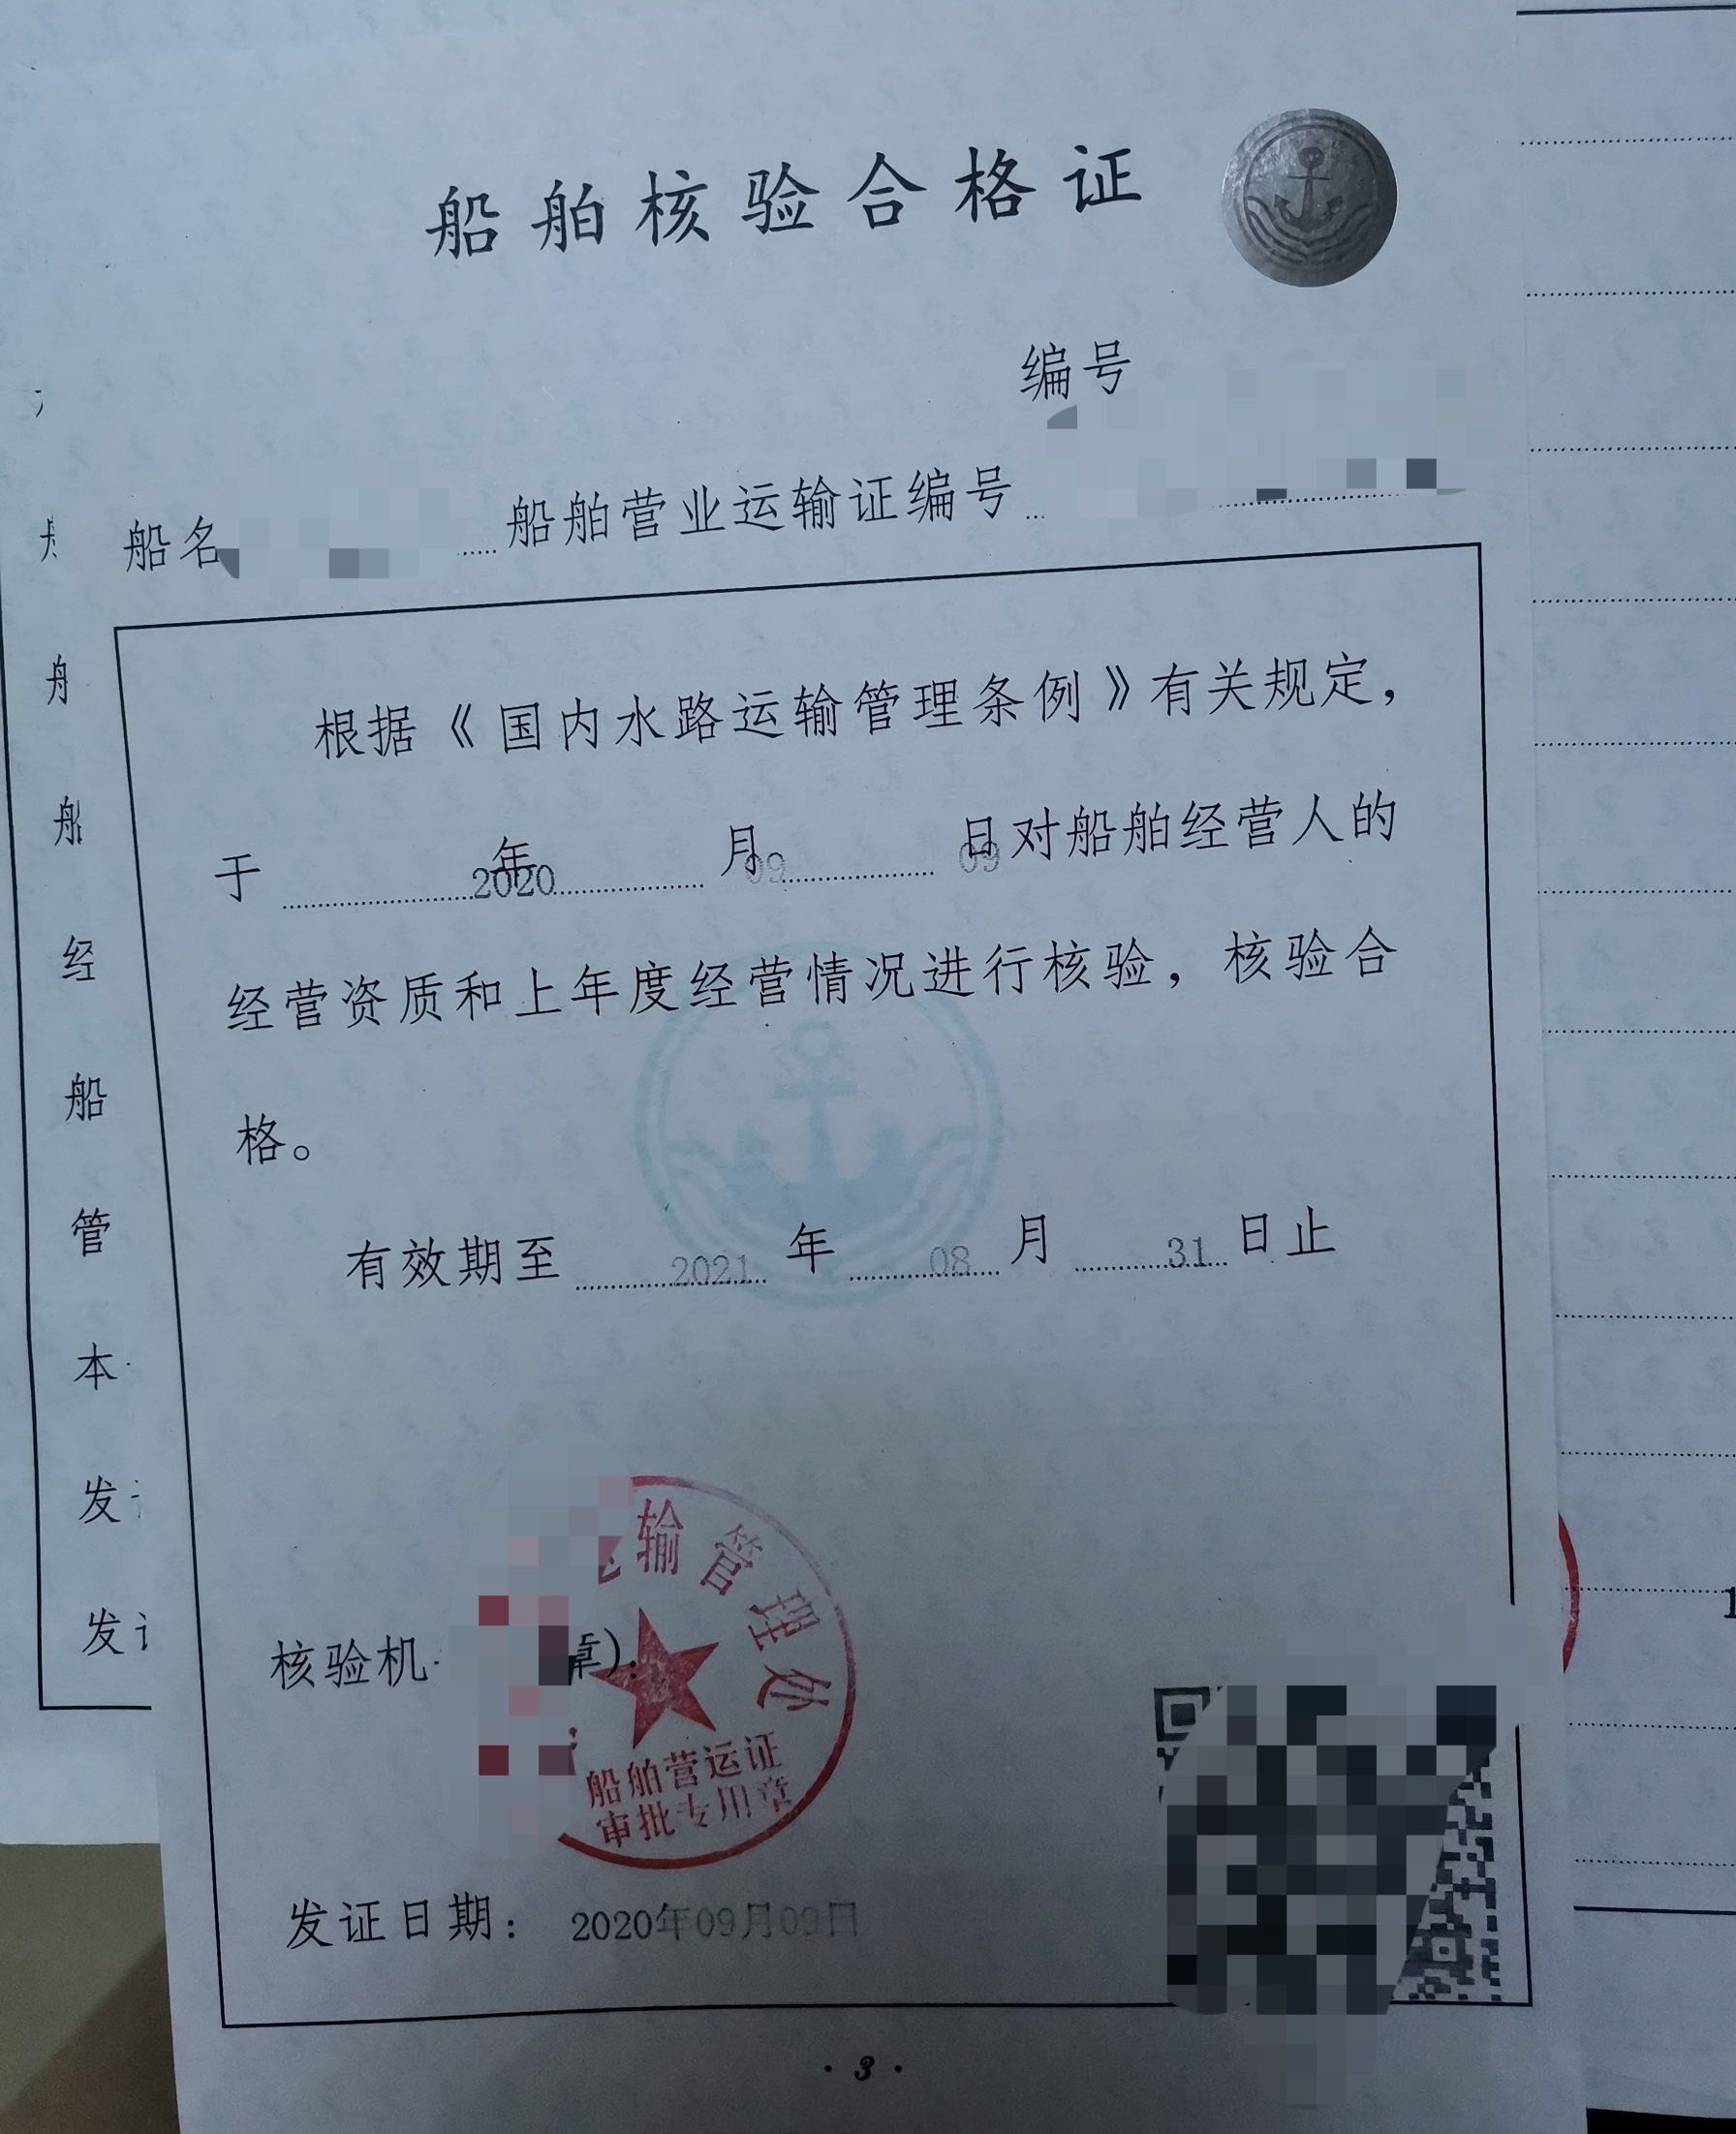 船舶核验合格证
编号
船名 船舶营业运输证编号
根据《国内水路运输管理条例》有关规定，
于 2020 年 09 月 09 日对船舶经营人的
经营资质和上年度经营情况进行核验，核验合
格。
有效期至 2021 年 08 月 31 日止
核验机 章）：
输管理处
船舶营运证
审批专用章
发证日期： 2020年09月09日
·3·
船
经
船
管
本
发
发